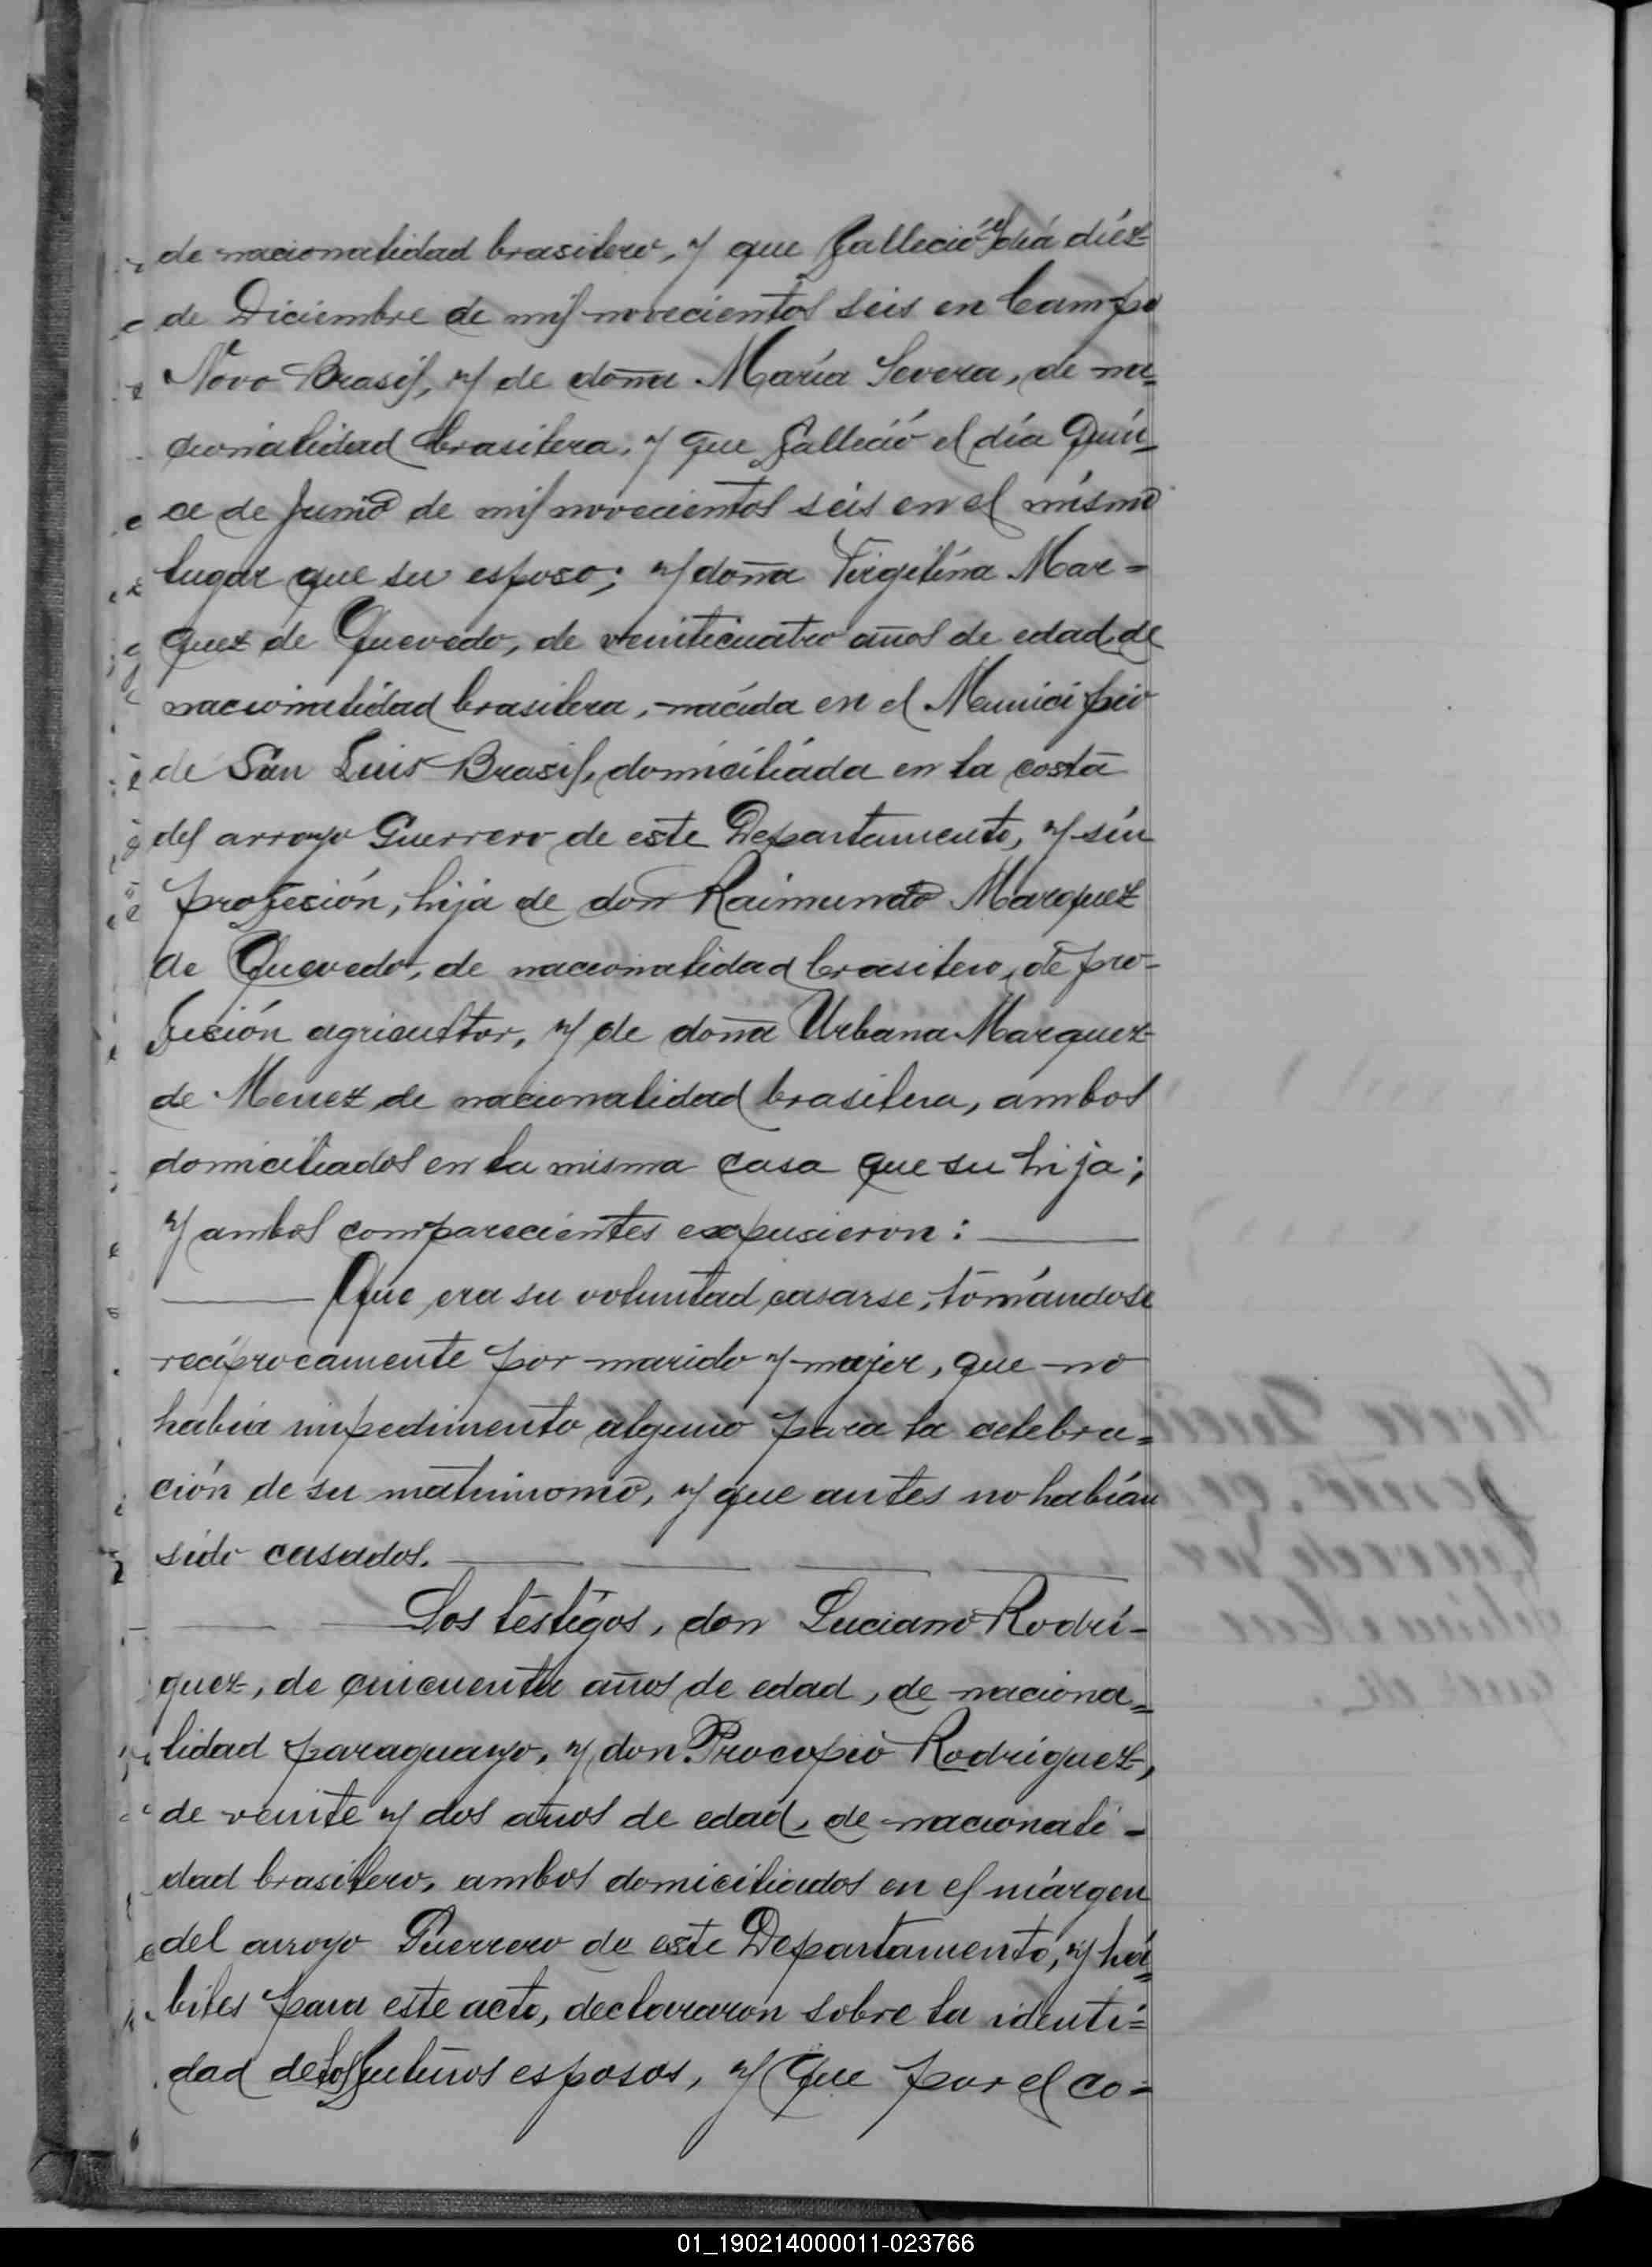 de nacionalidad brasilero, y que falleció el día diéz
de Diciembre de mil novecientos seis en Campo
Novo Brasil, y de doña María Severa, de na=
cionalidad brasilera, y que falleció el día Quin_
ce de Junio de mil novecientos seis en el mismo
lugar que su esposo; y doña Virgilina Mar=
quez de Quevedo, de veinticuatro años de edad de
nacionalidad brasilera, nacida en el Municipio
de San Luis Brasil, domiciliada en la costa
del arroyo Guerrero de este Departamento, y sin
profesión, hija de don Raimundo Marquez
de Quevedo, de nacionalidad brasilero, de pro-
fesión agricultor, y de doña Urbana Marquez
de Menez, de nacionalidad brasilera, ambos
domiciliados en la misma casa que su hija;
y ambos comparecientes expusieron:
Que era su voluntad casarse, tomándose
recíprocamente por marido y mujer, que no
había impedimento alguno para la celebra=
ción de su matrimonio, y que antes no habían
sido casados.
Los testigos, don Luciano Rodrí-
guez, de cincuenta años de edad, de naciona=
lidad paraguayo, y don Procopio Rodriguez,
de veinte y dos años de edad, de nacionali-
dad brasilero, ambos domiciliados en el márgen
del arroyo Guerrero de este Departamento, y há=
biles para este acto, declararon sobre la identi=
dad de los futuros esposos, y que por el co=
01_190214000011-023766